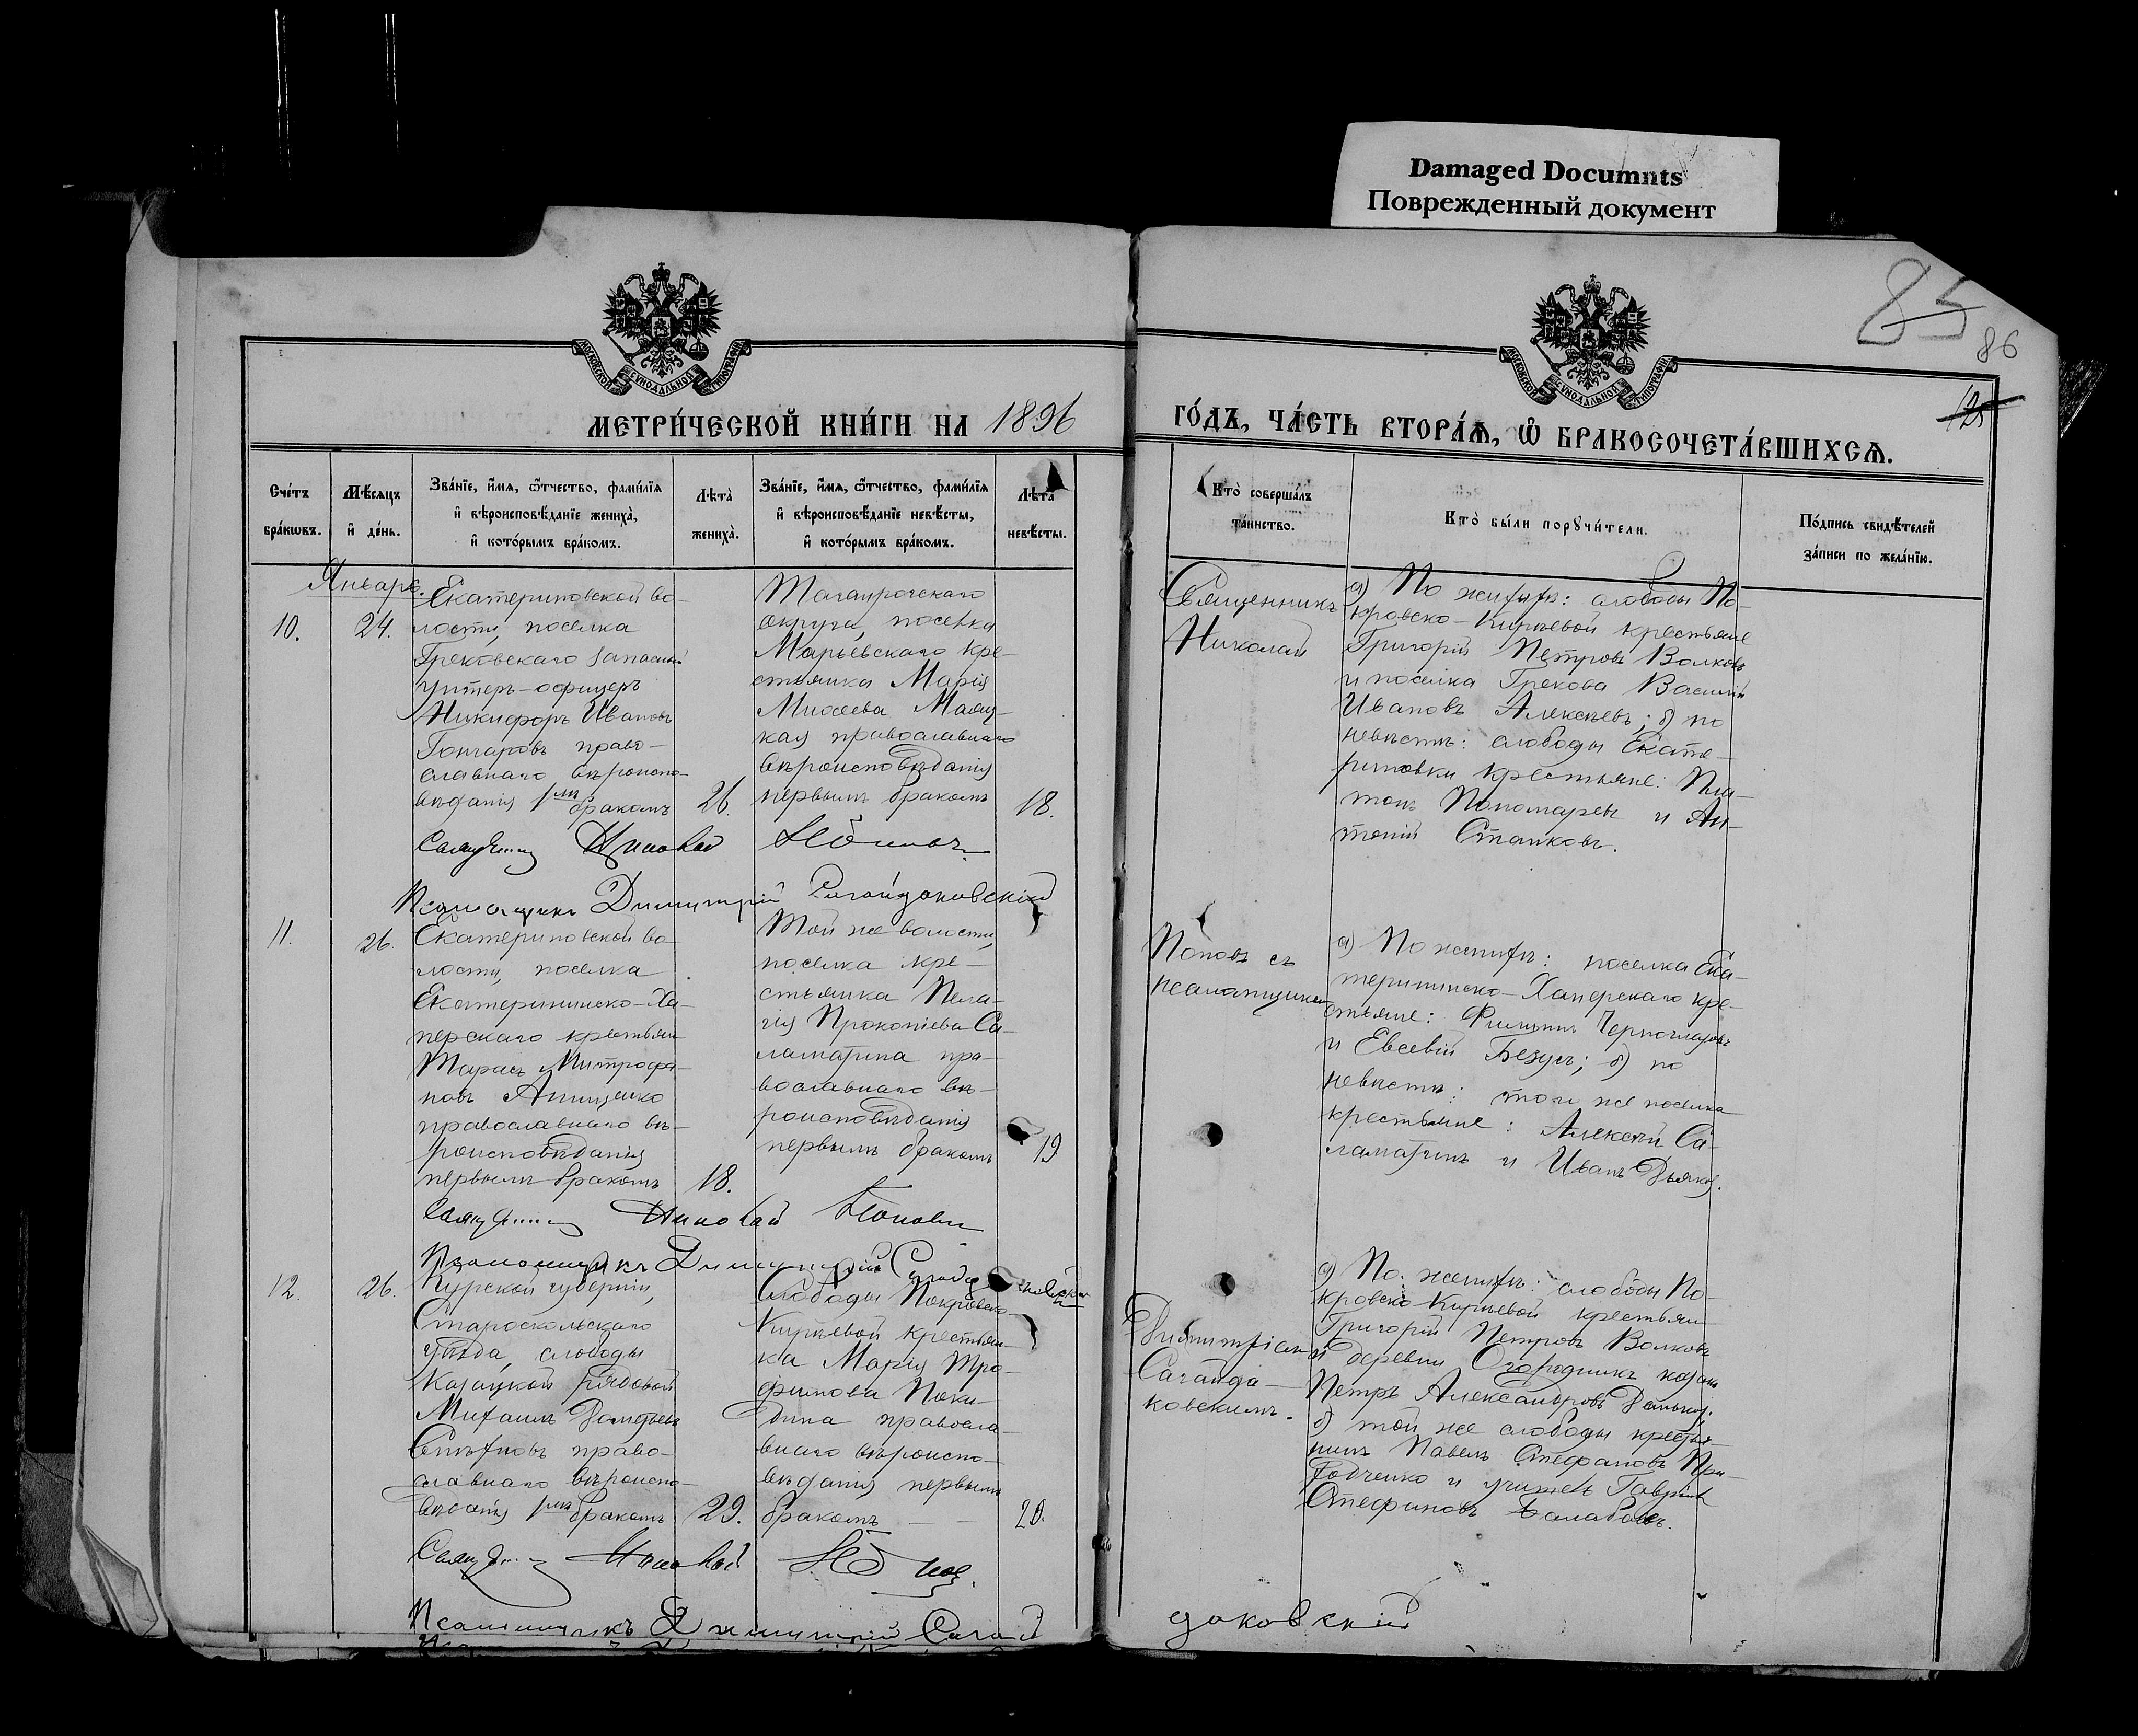 Damaged Documnts
Поврежденный документ
85
86
125
МОСКОВСКОЙ СѴНОДАЛЬНОЙ ТИПОГРАФІИ
МОСКОВСКОЙ СѴНОДАЛЬНОЙ ТИПОГРАФІИ
МЕТРИ́ЧЕСКОЙ КНИ́ГИ НА 1896
ГО́ДЪ, ЧА́СТЬ ВТОРА́Ѧ, Ѡ҆ БРАКОСОЧЕТА́ВШИХСѦ.
Сче́тъ
бра́кѡвъ.
Мѣ́сѧцъ
и҆ де́нь.
Зва́нїе, и҆́мѧ, ѻ҆́тчество, фами́лїѧ
и҆ вѣроисповѣ́данїе жениха̀,
и҆ кото́рымъ бра́комъ.
Лѣта̀
жениха̀.
Зва́нїе, и҆́мѧ, ѻ҆́тчество, фами́лїѧ
и҆ вѣроисповѣ́данїе невѣ́сты,
и҆ кото́рымъ бра́комъ.
Лѣта̀
невѣ́сты.
Кто̀ соверша́лъ
та́инство.
Кто̀ бы́ли порꙋчи́тели.
По́дпись свидѣ́телей
за́писи по жела́нїю.
Январь.
10.
24.
Екатериновской во-
лости, поселка
Грековскаго запасный
унтеръ-офицеръ
Никифоръ Ивановъ
Гончаровъ право-
славнаго вѣроиспо-
вѣданія 1мъ бракомъ
26.
Таганрогскаго
округа, поселка
Марьевскаго кре-
стьянка Марія
Моисеева
кая православнаго
вѣроисповѣданія
первымъ бракомъ
18.
Священникъ
Николай
а) По женихѣ: слободы По-
кровско-Кирѣевой крестьяне
Григорій Петровъ Волковъ
и поселка Грекова Василій
Ивановъ Алексѣевъ; б) по
невѣстѣ: слободы Екате-
риновки крестьяне: Пла-
тонъ Пономаревъ и Ан-
тоній Станковъ.
Священникъ Николай Поповъ
Псаломщикъ Димитрій Сагайдаковскій
11.
26.
Екатериновской во-
лости, поселка
Екатерининско-Ха-
перскаго крестьян
Тарасъ Митрофа-
новъ Анищенко
православнаго вѣ-
роисповѣданія
первымъ бракомъ
18.
Той же волости,
поселка кре-
стьянка Пела-
гія Прокопіева Са-
ламатина пра-
вославнаго вѣ-
роисповѣданія
первымъ бракомъ
19
Поповъ съ
псаломщикомъ
а) По женихѣ: поселка Ека-
терининско-Хаперскаго кре-
стьяне: Филиппъ Черноглазовъ
и Евсевій Безусъ; б) по
невѣстѣ: того же поселка
крестьяне: Алексѣй Са-
ламатинъ и Иванъ
Священникъ Николай Поповъ
Псаломщикъ Димитрій Сагайдаковскій
12.
26.
Курской губерніи,
Староскольскаго
уѣзда, слободы
Казацкой рядовой
Михаилъ
право-
славнаго вѣроиспо-
вѣданія 1мъ бракомъ
29.
Слободы Покровско-
Кирѣевой крестьян-
ка Марія Тро-
фимова Поки-
дина правосла-
внаго вѣроиспо-
вѣданія первымъ
бракомъ
20.
Димитріемъ
Сагайда-
ковскимъ.
а) По женихѣ: слободы По-
кровско-Кирѣевой крестьян
Григорій Петровъ Волковъ
и деревни
Петръ Александровъ
б) той же слободы крестья-
нинъ Павелъ Стефановъ При-
ходченко и учитель Гавріилъ
Стефановъ Балабасъ.
Священникъ Николай
Псаломщикъ Димитрій Сагай
даковскій